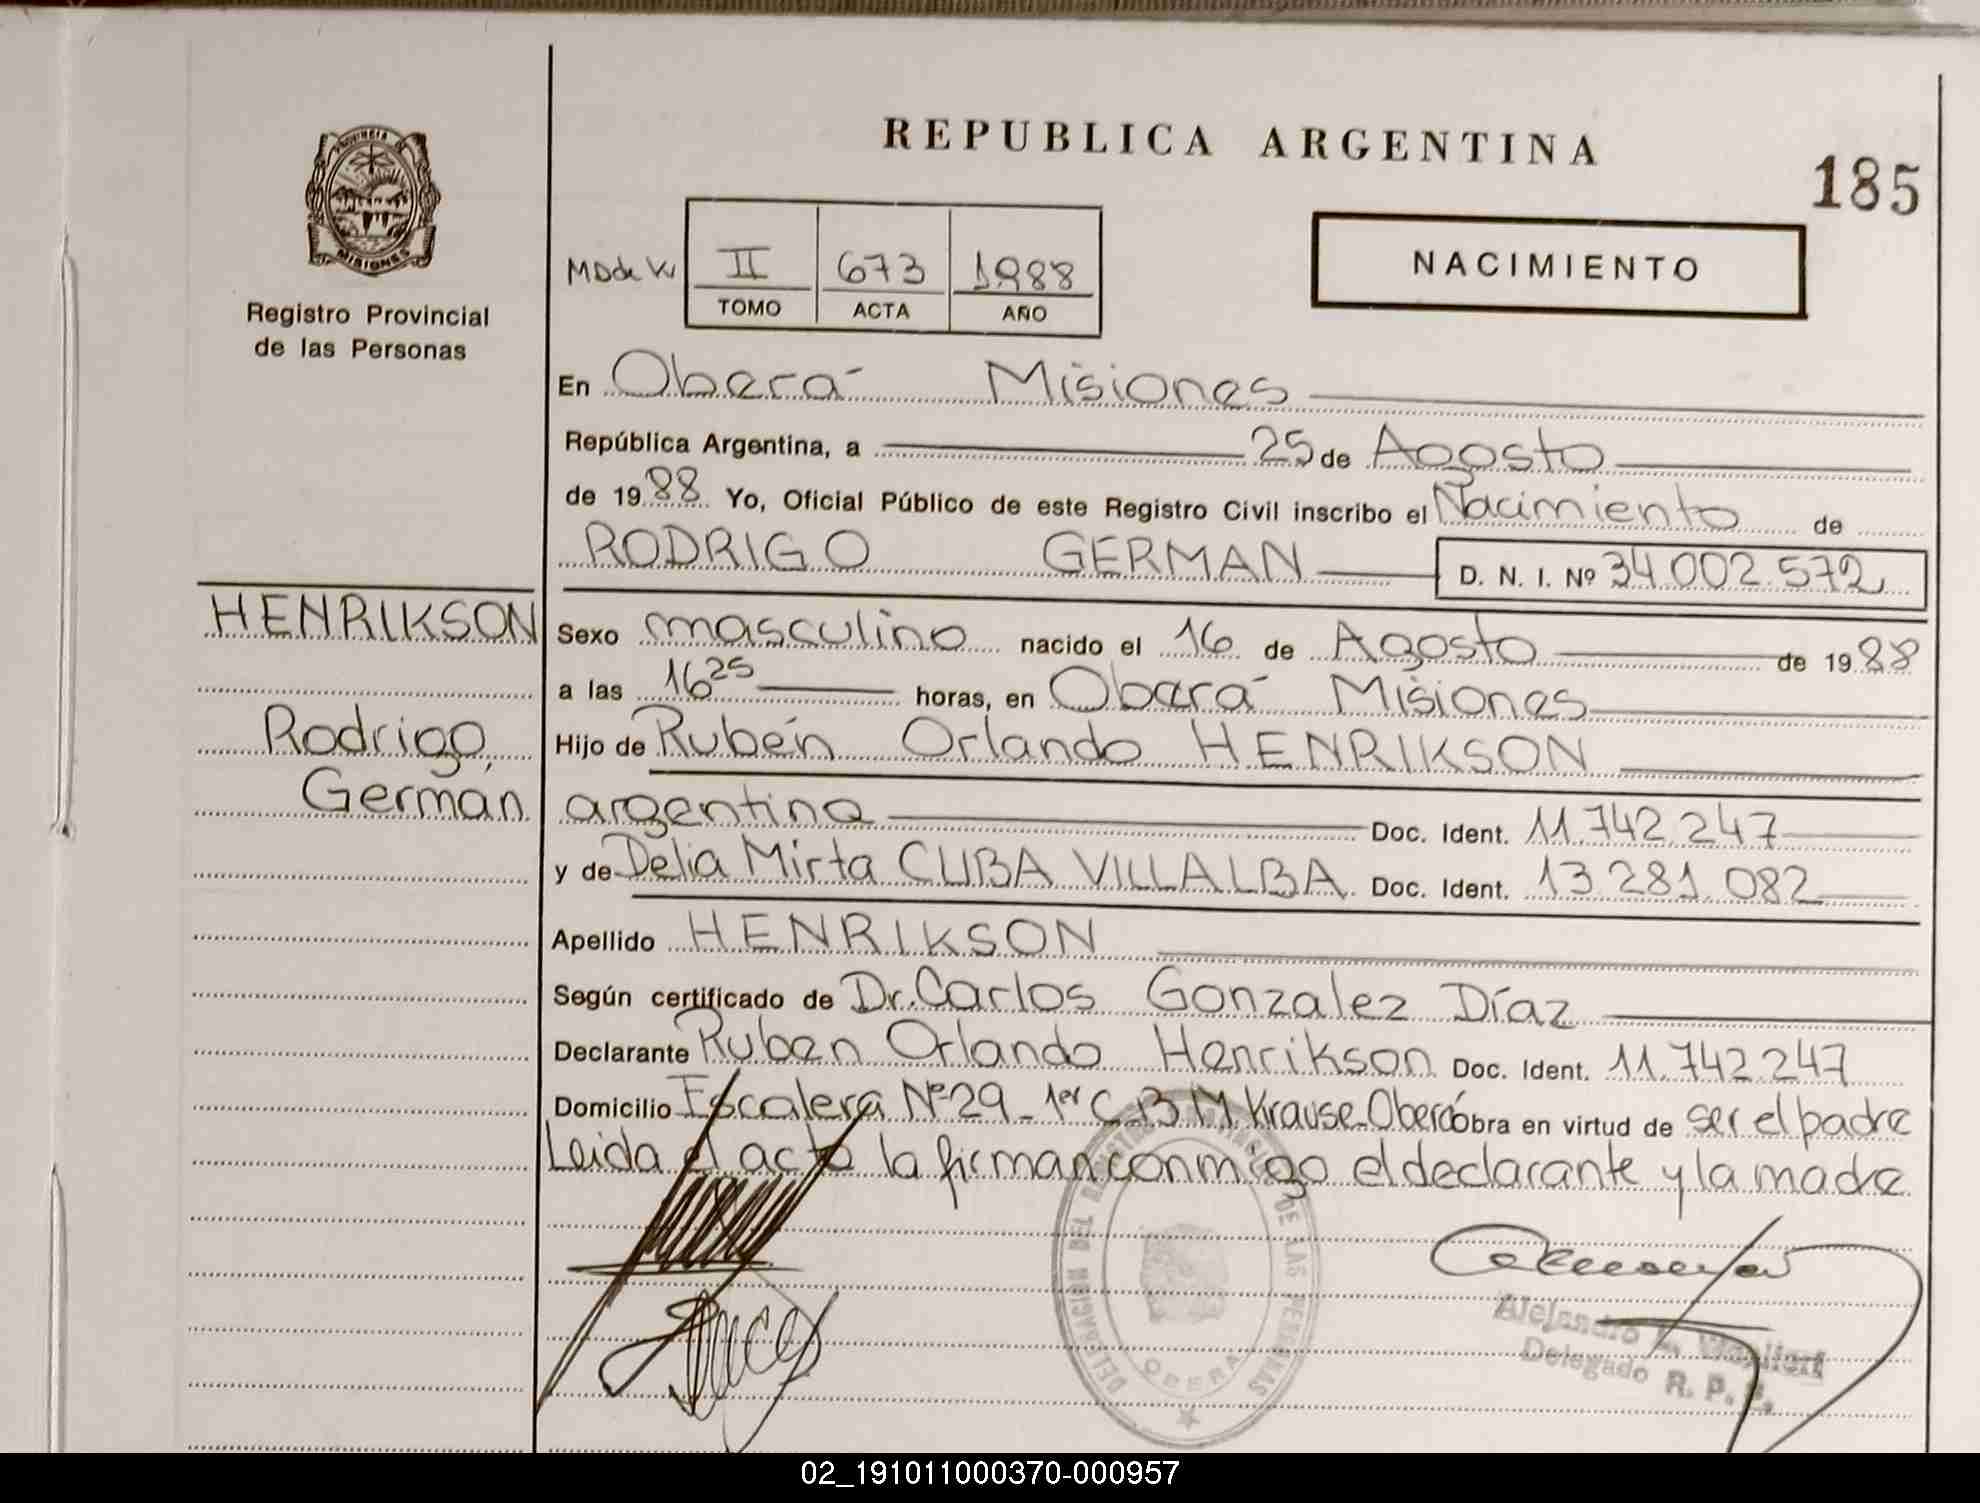 REPUBLICA ARGENTINA
185
PROVINCIA DE
MISIONES
Registro Provincial
de las Personas
II 673 1988
TOMO ACTA AÑO
NACIMIENTO
En Oberá Misiones
República Argentina, a 25 de Agosto
de 1988 Yo, Oficial Público de este Registro Civil inscribo el Nacimiento de
RODRIGO GERMAN D. N. I. Nº 34.002.572
HENRIKSON
Rodrigo
Germán
Sexo masculino nacido el 16 de Agosto de 1988
a las 16 25 horas, en Oberá Misiones
Hijo de Rubén Orlando HENRIKSON
argentina Doc. Ident. 11.742.247
y de Delia Mirta CUBA VILLALBA Doc. Ident. 13.281.082
Apellido HENRIKSON
Según certificado de Dr. Carlos Gonzalez Díaz
Declarante Ruben Orlando Henrikson Doc. Ident. 11.742.247
Domicilio Escalera Nº 29 - 1er C. B M Krause-Oberá obra en virtud de ser el padre
Leida el acta la firman conmigo el declarante y la madre
DELEGACION DEL REGISTRO DE LAS PERSONAS
OBERA
Alejandro A.
Delegado R. P. P.
02_191011000370-000957